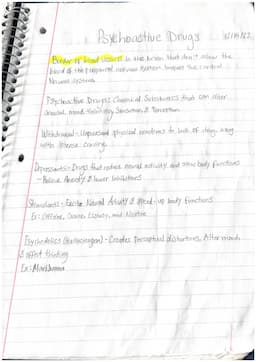 Psychoactive Drugs
Blood vessels in the brain that don't allow the
blood of the peripheral nervous system impact the central
Nervous system.
Psychoactive Drugs: Chemical Substances that can alter
arousal, mood, thinking, Sensation, & Perception
Withdrawal - Unpleasant physical reactions to lack of drug, along
with intense craving.
Depressants - Drugs that reduce neural activity and slow body functions
- Relieve Anxiety & lower Inhibitions
Stimulants - Excite Neural Activity & Speed-up body functions
Ex: Caffeine, Cocaine, and Nicotine
Psychedelics (Hallucinogen) - Creates Perceptual distortions, Alter mood,
& affect thinking
Ex: Marijuana